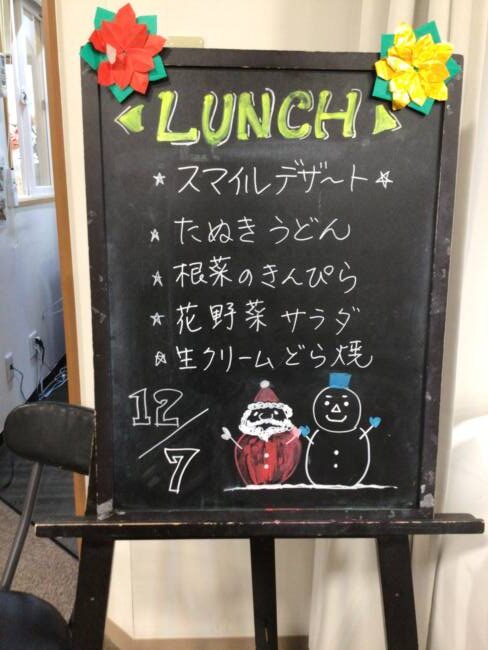 LUNCH
☆ スマイルデザ〜ト☆
☆ たぬきうどん
☆ 根菜のきんぴら
☆ 花野菜サラダ
☆ 生クリームどら焼
12/7